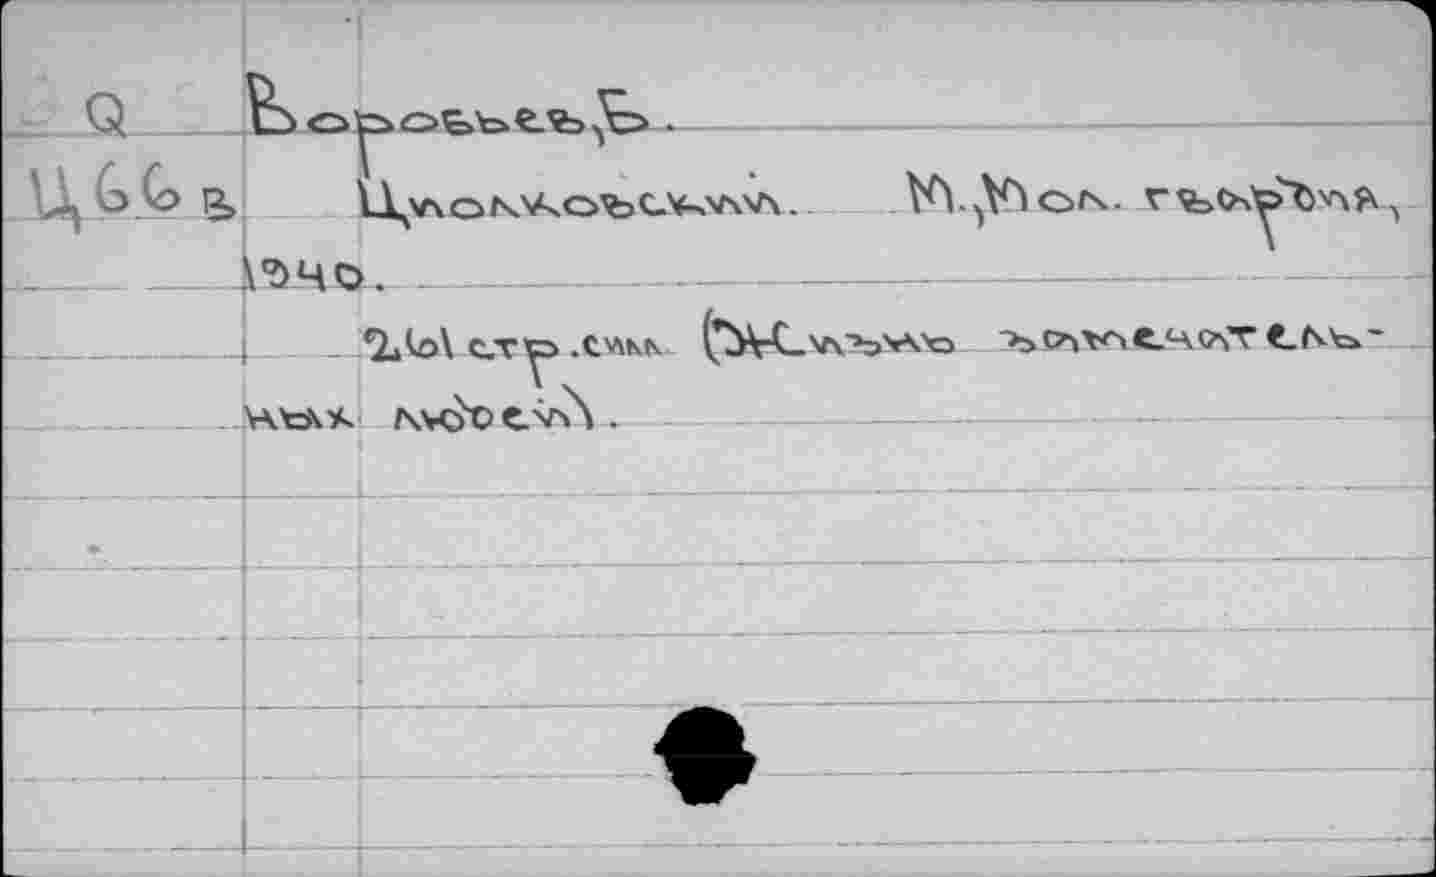 Q Воробьев,Б.
Ц66 в Циолковский. М.,Мол. гвардия,
1940.
261 стр.силл. (Жизнь замечатель-
ных людей).